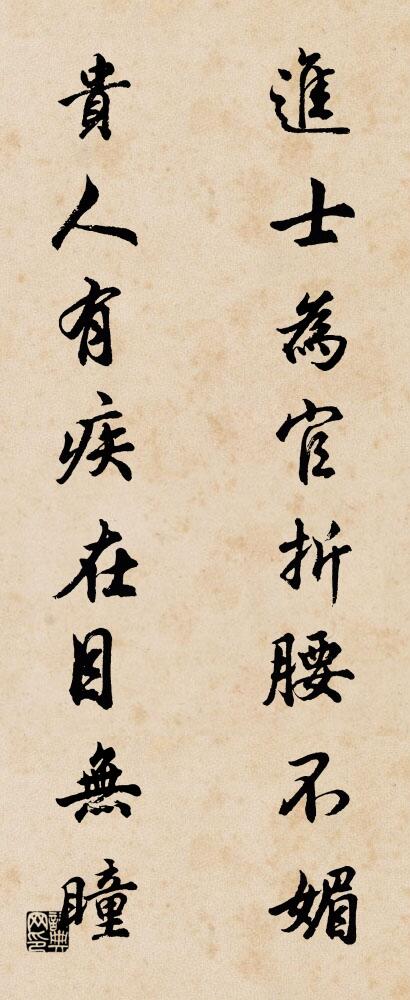 進士為官折腰不媚
貴人有疾在目無瞳